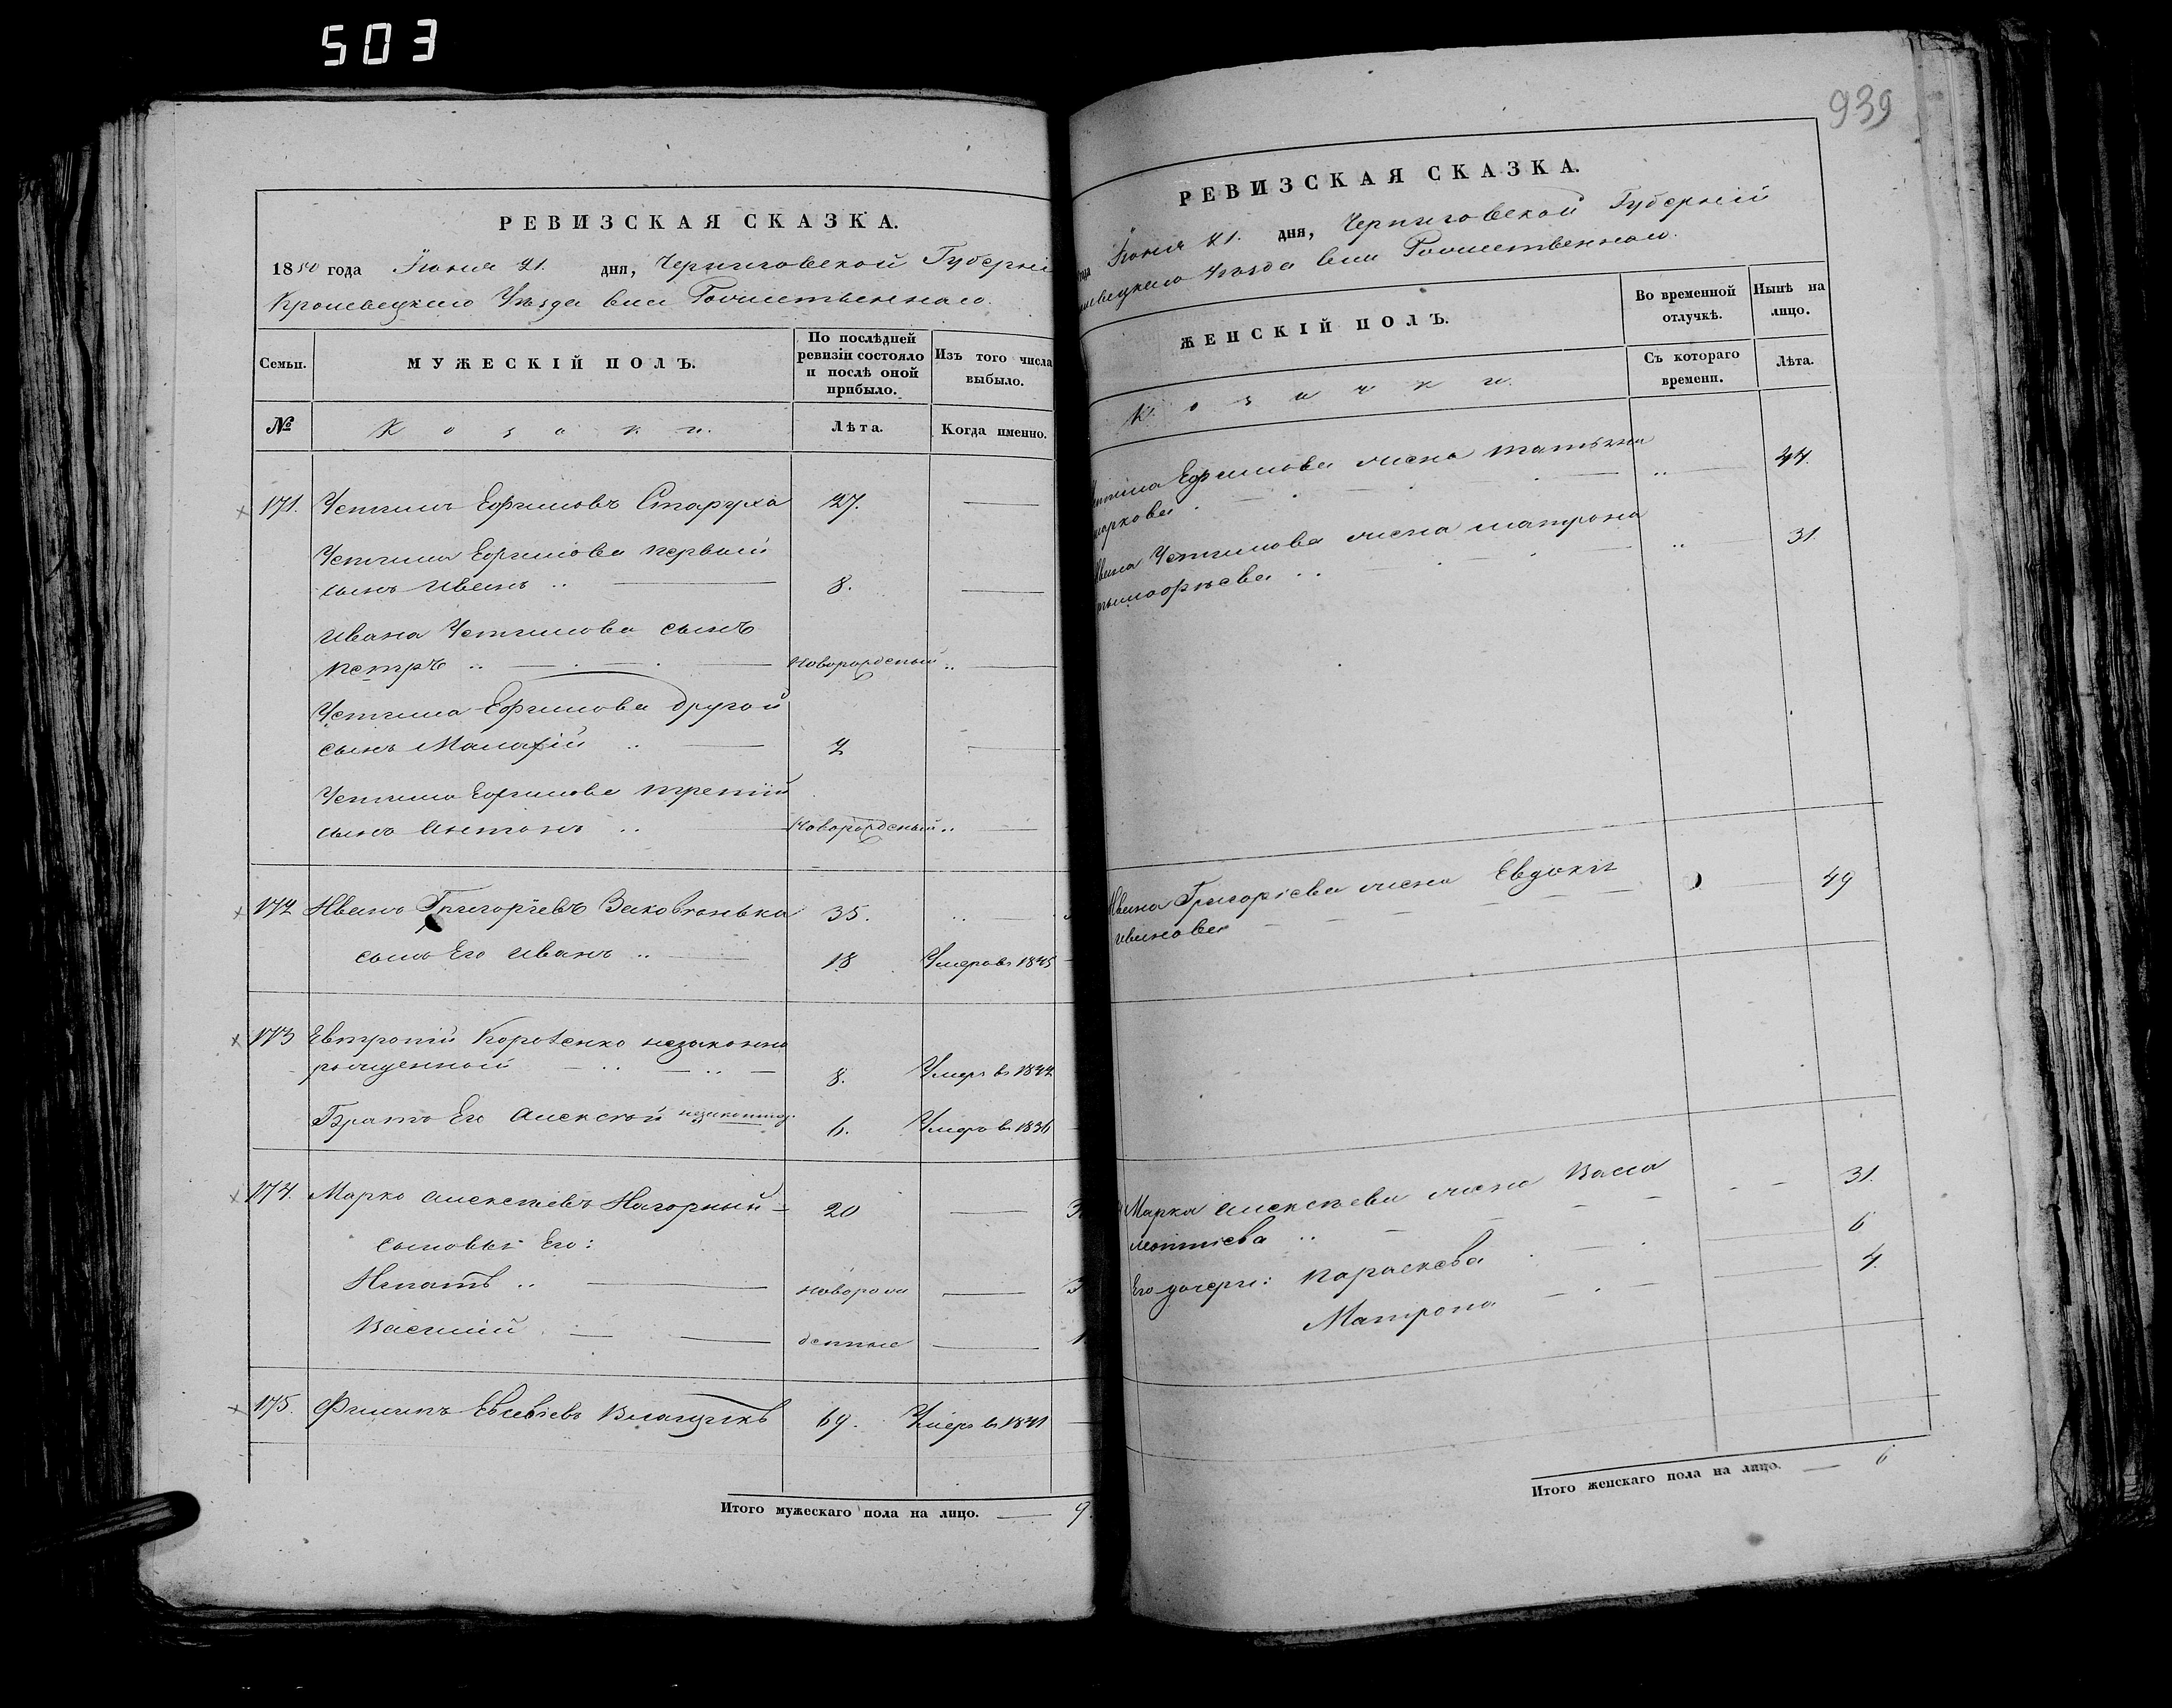 503
939
РЕВИЗСКАЯ СКАЗКА.
1850 года Іюня 21. дня, Черниговской Губерніи
Кролевецкаго Уѣзда
Семьи. МУЖЕСКІЙ ПОЛЪ. По послѣдней ревизіи состояло и послѣ оной прибыло. Изъ того числа выбыло.
№ Козаки. Лѣта. Когда именно.
171. Устимъ Ефимовъ Старуха 27.
Устима Ефимова первый
сынъ Иванъ 8.
Ивана Устимова сынъ
Петръ новорожденый
Устима Ефимова другой
сынъ Малафій 2
Устима Ефимова третій
сынъ Антонъ новорожденый
172 Иванъ Григоріевъ 35.
сынъ Его Иванъ 18 Умеръ въ 1845
173 Евтропій незаконно
рожденной 8. Умеръ въ 1844
Братъ Его Алексѣй 6. Умеръ въ 1836
174. Марко Алексѣевъ Нагорный 20
сыновья Его:
Игнатъ новорож
Василій денные
175. Филипъ Евсевіевъ 69. Умеръ въ 1841
Итого мужескаго пола на лицо. 9.
РЕВИЗСКАЯ СКАЗКА.
года Іюня 21. дня, Черниговской Губерніи
Уѣзда
ЖЕНСКІЙ ПОЛЪ. Во временной отлучкѣ. Нынѣ на лицо.
Козачки. Съ котораго времени. Лѣта.
Ефимова жена Татьяна 44.
Маркова
Устимова жена Матрона 31
Тимофѣева
Ивана Григоріева жена Евдокія 49
Иванова
Марка Алексѣева жена Васса 31.
Леонтіева
Его дочери: Параскева 6
Матрона 4.
Итого женскаго пола на лицо. 6